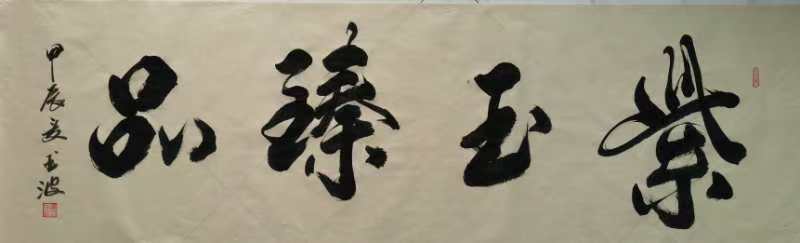 紫玉臻品
甲辰夏玉波